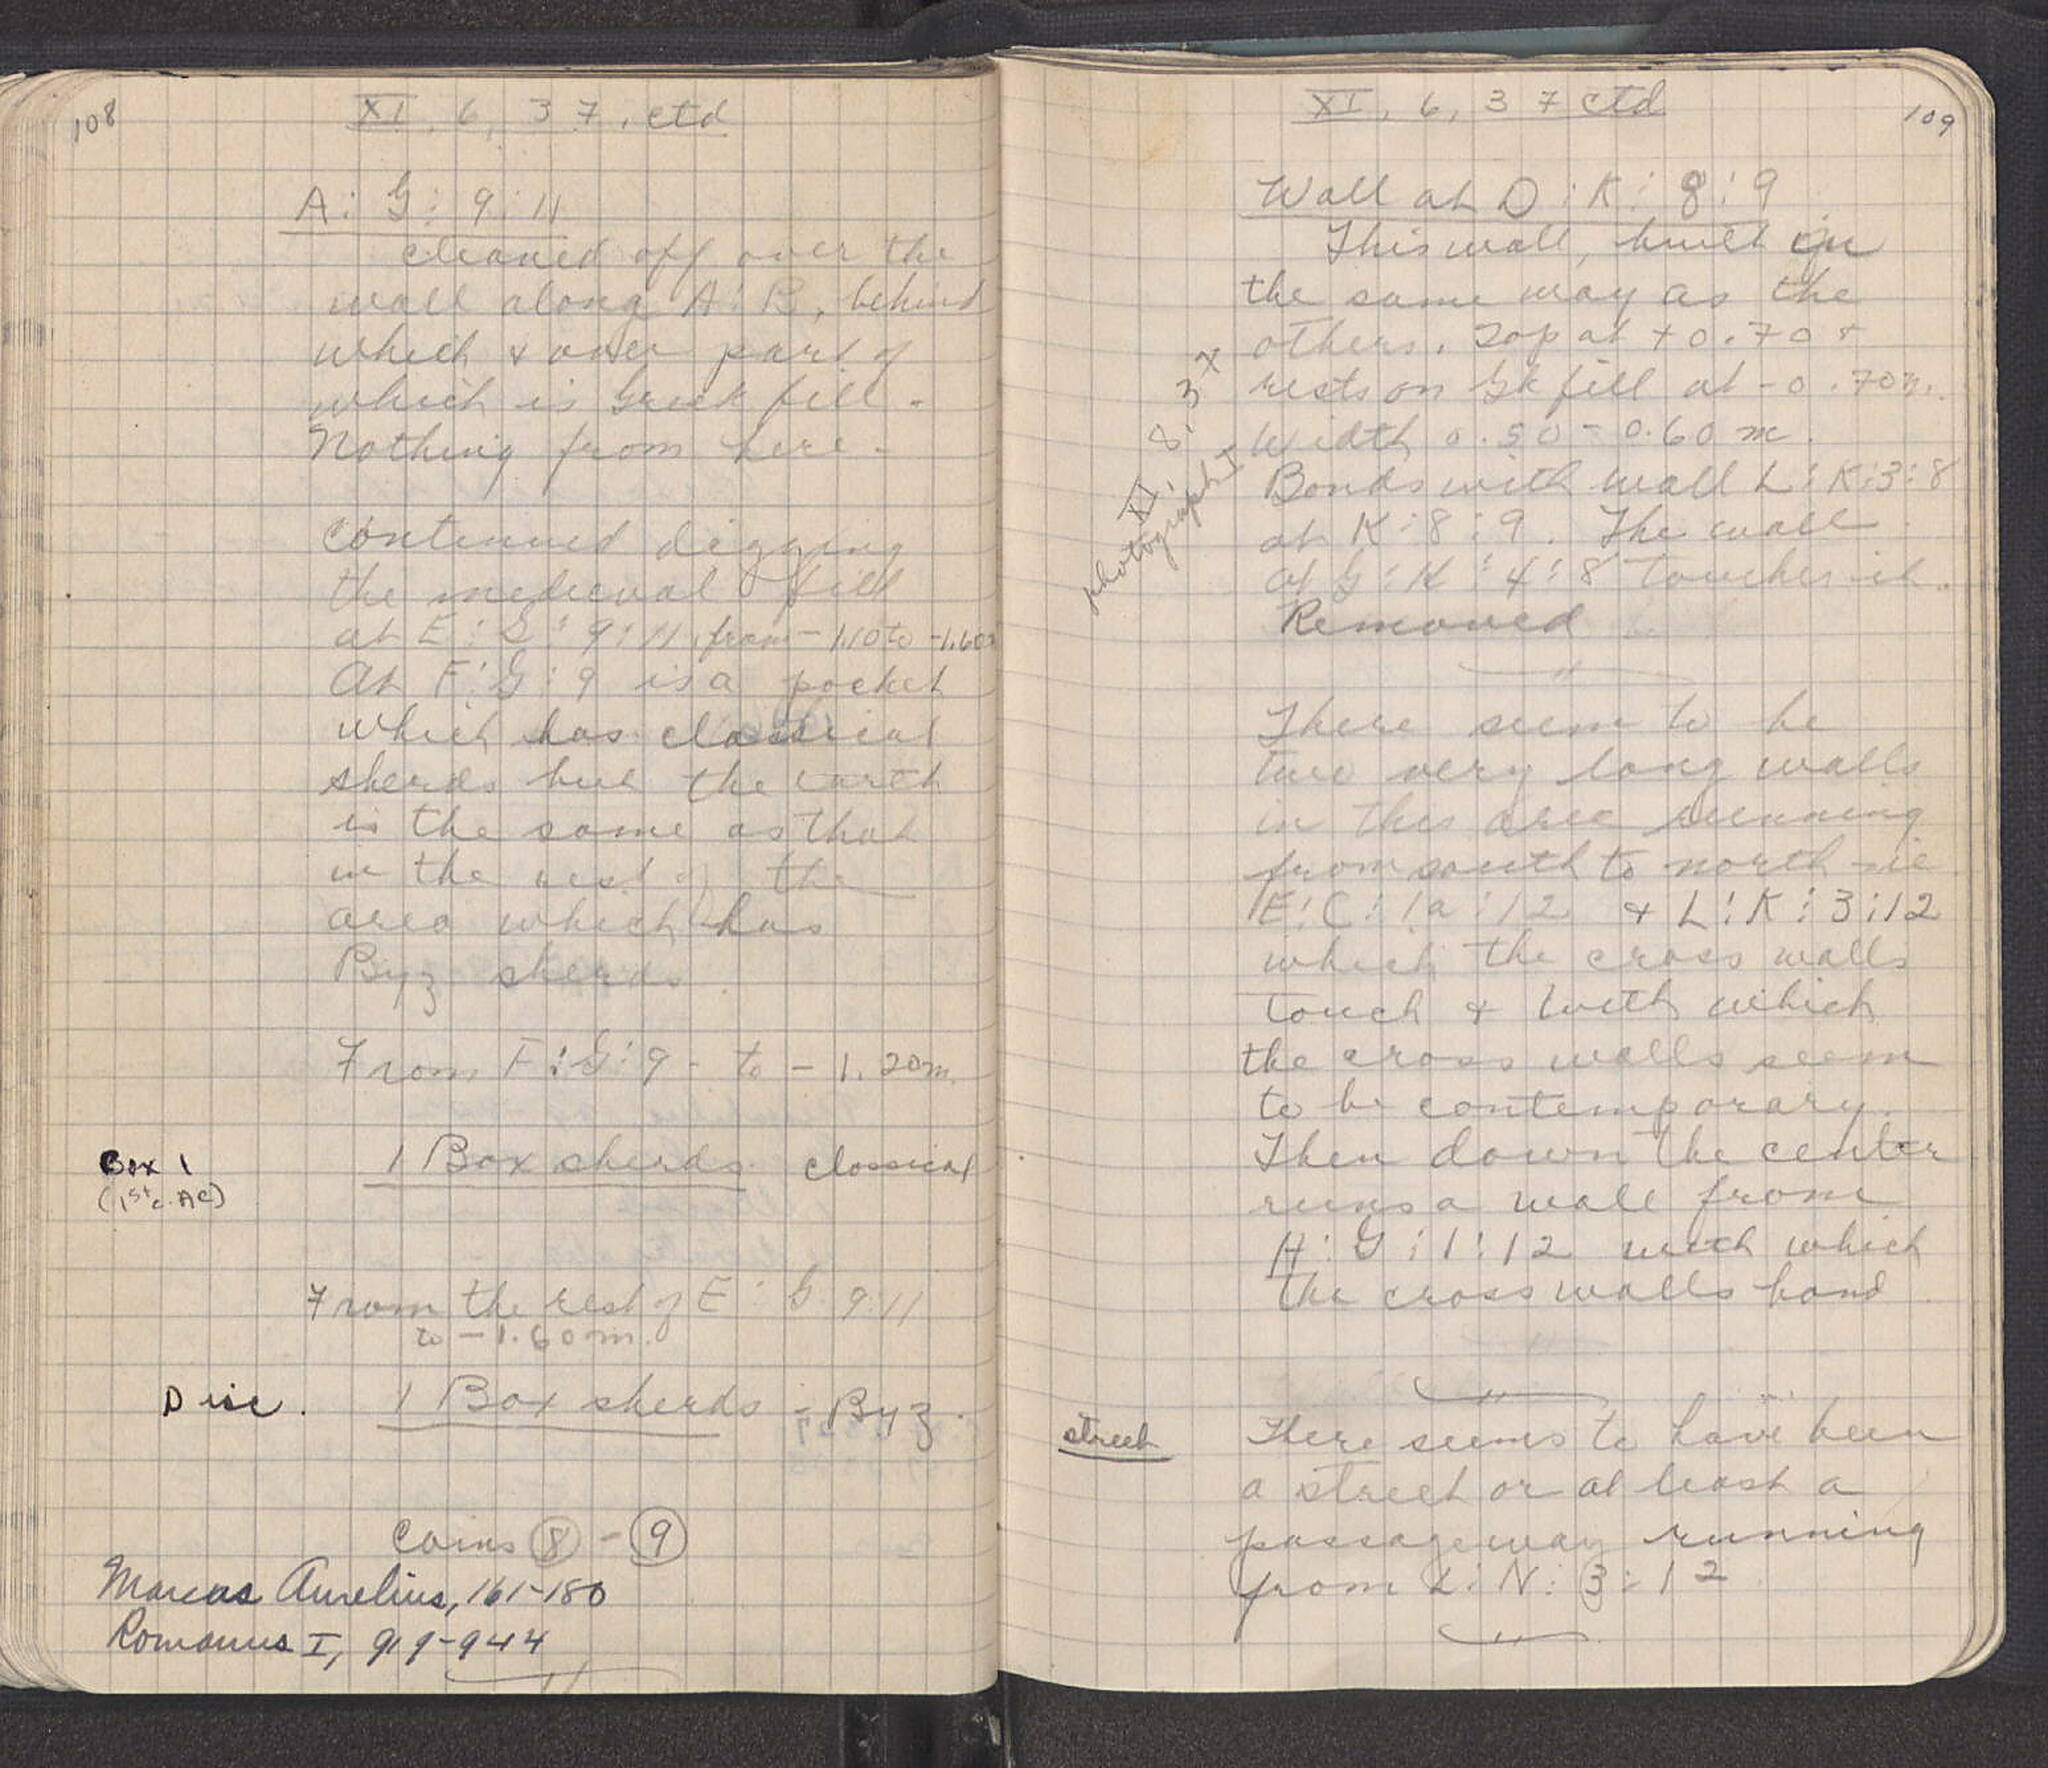 108
XI, 6, 37, ctd
A:G:9:11
cleaned off over the
wall along A:B, behind
which & over part of
which is Greek fill.
Nothing from here.
Continued digging
the medieval fill
at E:G:9:11 from -1.10 to -1.60m
At F:G:9 is a pocket
which has classical
sherds but the earth
is the same as that
in the rest of the
area which has
Byz sherds.
From F:G:9 - to -1.20m.
Box 1
(1st c. AC)
1 Box sherds classical
From the rest of E:G:9:11
to -1.60m.
Disc.
1 Box sherds - Byz.
Coins 8 - 9
Marcus Aurelius, 161-180
Romanus I, 919-944
XI, 6, 37 ctd
109
Wall at D:K:8:9
This wall, built in
the same way as the
others. Top at +0.70 &
rests on Gk fill at -0.70m.
Width 0.50-0.60m.
Bonds with wall L:K:3:8
at K:8:9. The wall
at G:H:4:8 touches it.
Removed
XI, 8, 37
photograph I
There seem to be
two very long walls
in this area running
from south to north - ie
E:C:1a:12 & L:K:3:12
which the cross walls
touch & with which
the cross walls seem
to be contemporary.
Then down the center
runs a wall from
H:G:1:12 with which
the cross walls bond
street
There seems to have been
a street or at least a
passageway running
from L:N:3:12